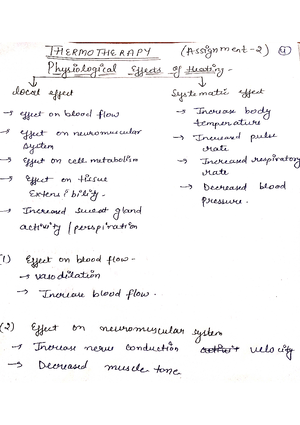 THERMOTHERAPY (Assignment-2) 4
Physiological Effects of Heating -
local effect
→ effect on blood flow
→ effect on neuromuscular
system
→ Effect on cell metabolism
→ Effect on tissue
Extensibility.
→ Increased sweat gland
activity / perspiration
Systematic effect
→ Increase body
temperature
→ Increased pulse
rate
→ Increased respiratory
rate
→ Decreased blood
pressure.
(1) Effect on blood flow-
→ vasodilation
→ Increase blood flow.
(2) Effect on neuromuscular system
→ Increase nerve conduction velocity
→ Decreased muscle tone